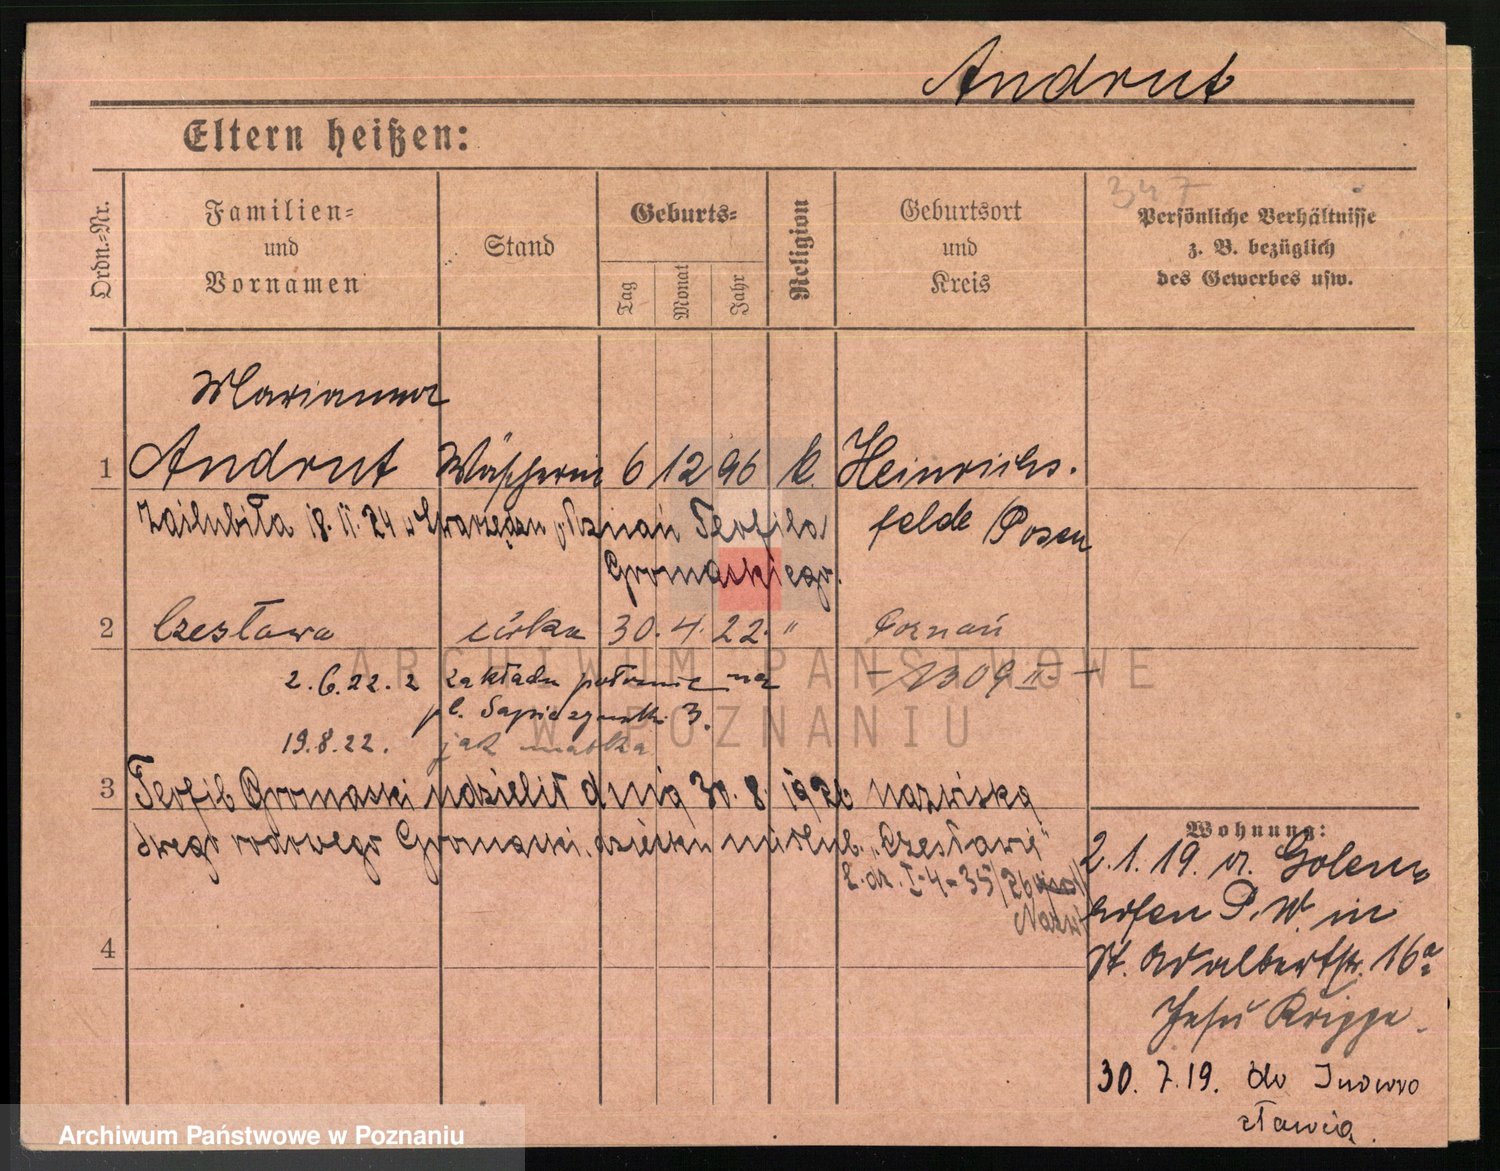 Andrut
Eltern heißen:
347
Ordn.-Nr.
Familien-
und
Vornamen
Stand
Geburts-
Tag
Monat
Jahr
Religion
Geburtsort
und
Kreis
Persönliche Verhältnisse
z. B. bezüglich
des Gewerbes usw.
Marianna
1 Andrut Wäscherin 6 12 96 k. Heinrichs-
felde / Posen
Zaślubiła 18. 11. 24 w Swarzędzu p. Poznań Teofila
Gromaskiego.
2 Czesława córka 30. 4. 22. " Poznań
2.6.22. z zakładu położnic na - 1309 II -
pl. Sapieżyński 3.
19.8.22. jak matka
3 Teofil Gromaski udzielił dnia 30. 8. 1926 nazwiska
swego rodowego Gromaski dziecku nieślub. „Czesławie"
L. dz. I-4-35/26
Nazw
4
Wohnung:
2.1.19. v. Golen-
hofen P. W. in
St. Adalbertstr. 16a
Jesu Krippe.
30. 7. 19. do Inowro
cławia.
ARCHIWUM PAŃSTWOWE
W POZNANIU
Archiwum Państwowe w Poznaniu